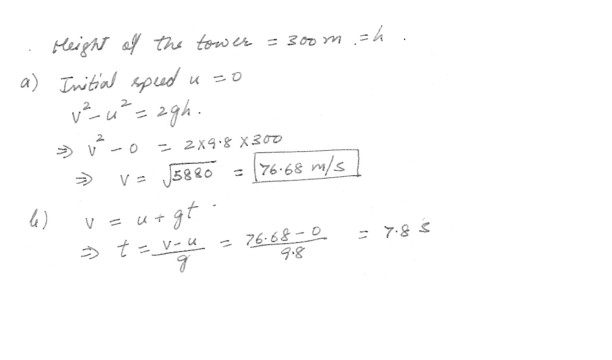 . Height of the tower = 300 m . = h .
a) Initial speed u = 0
v² - u² = 2gh .
⇒ v² - 0 = 2×9.8×300
⇒ v = √5880 = 76.68 m/s
b) v = u + gt .
⇒ t = (v-u)/g = (76.68 - 0)/9.8 = 7.8 s